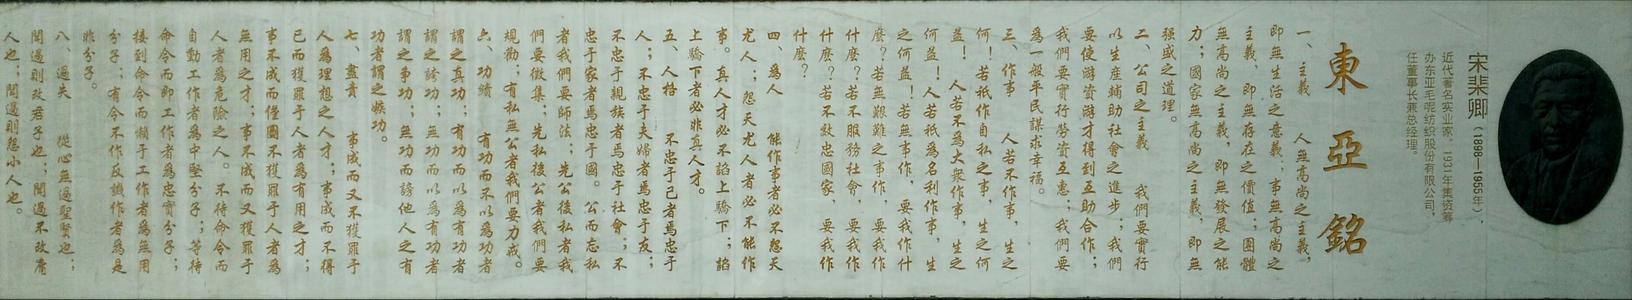 宋棐卿（1898—1955年），
近代著名实业家，1931年集资筹
办东亚毛呢纺织股份有限公司，
任董事长兼总经理。
東亞銘
一、主義　人無高尚之主義，
即無生活之意義，事無高尚之
主義，即無存在之價值，團體
無高尚之主義，即無發展之能
力；國家無高尚之主義，即無
强盛之道理。
二、公司之主義　我們要實行
以生産輔助社會之進步；我們
要使游資游才得到互助合作；
我們要實行勞資互惠；我們要
爲一般平民謀求幸福。
三、作事　人若不作事，生之
何！若衹作自私之事，生之何
益！　人若不爲大衆作事，生之
何益！人若衹爲名利作事，生
之何益！若無事作，要我作什
麽？若無艱難之事作，要我作
什麽？若不服務社會，要我作
什麽？若不效忠國家，要我作
什麽？
四、爲人　能作事者必不怨天
尤人；怨天尤人者必不能作
事。真人才必不諂上驕下；諂
上驕下者必非真人才。
五、人格　不忠于己者焉忠于
人；不忠于夫婦者焉忠于友；
不忠于親族者焉忠于社會；不
忠于家者焉忠于國。公而忘私
者我們要師法；先公後私者我
們要徵集；先私後公者我們要
規勸；有私無公者我們要力戒。
六、功績　有功而不以爲功者
謂之真功；有功而以爲有功者
謂之誇功；無功而以爲有功者
謂之事功；無功而謗他人之有
功者謂之嫉功。
七、盡責　事成而又不獲罪于
人爲理想之人才；事成而不得
已而獲罪于人者爲有用之才；
事不成而僅圖不獲罪于人者爲
無用之才；事不成而又獲罪于
人者爲危險之人。不待命令而
自動工作者爲中堅分子；等待
命令而即工作者爲忠實分子；
接到命令而懶于工作者爲無用
分子；有令不作反譏作者爲是
非分子。
八、過失　從心無過聖賢也；
聞過則改君子也；聞過不改庸
人也；聞過則怨小人也。